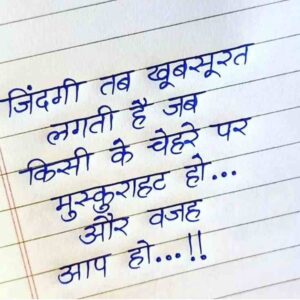 ज़िंदगी तब खूबसूरत
लगती है जब
किसी के चेहरे पर
मुस्कुराहट हो...
और वजह
आप हो...!!